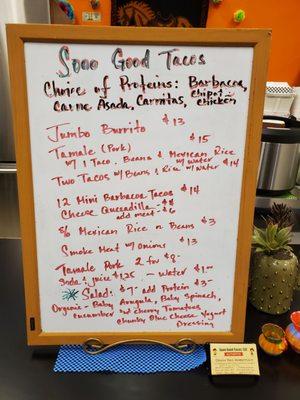 Sooo Good Tacos
Choice of Proteins: Barbacoa,
Carne Asada, Carnitas, Chipotle
chicken
Jumbo Burrito $13
Tamale (Pork) $15
w/ 1 Taco, Beans & Mexican Rice
w/ water
Two Tacos w/ Beans & Rice w/ water $14
12 Mini Barbacoa Tacos $14
Cheese Quesadilla - $4
add meat - $6
Mexican Rice or Beans $3
Smoke Meat w/ Onions $13
Tamale Pork 2 for $8-
Soda & juice $1.25 - Water $1.00
Salad: $7- add Protein $3-
Organic - Baby Arugula, Baby Spinach,
Cucumber w/ cherry Tomatoes,
Chunky Blue Cheese Yogurt
Dressing